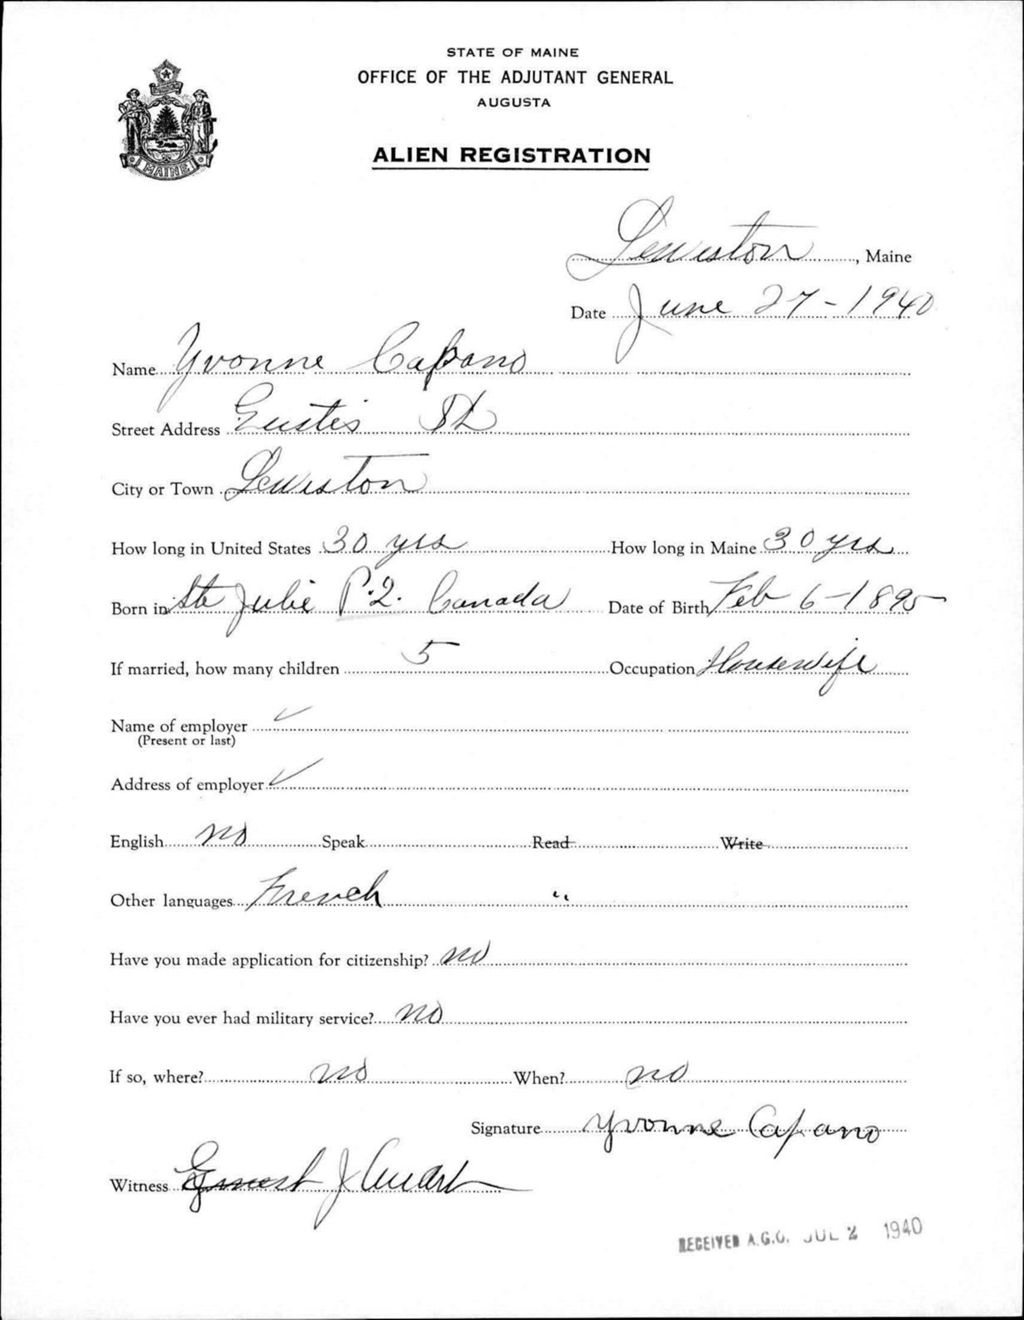 STATE OF MAINE
OFFICE OF THE ADJUTANT GENERAL
AUGUSTA
ALIEN REGISTRATION
MAINE
Lewiston, Maine
Date June 27-1940
Name Yvonne Capano
Street Address Eustis St
City or Town Lewiston
How long in United States 30 yrs How long in Maine 30 yrs
Born in Ste Julie P.Q. Canada Date of Birth Feb 6-1895
If married, how many children 5 Occupation Housewife
Name of employer ✓
(Present or last)
Address of employer ✓
English no Speak Read Write
Other languages French "
Have you made application for citizenship? no
Have you ever had military service? no
If so, where? no When? no
Signature Yvonne Capano
Witness Ernest J
RECEIVED A.G.O. JUL 2 1940